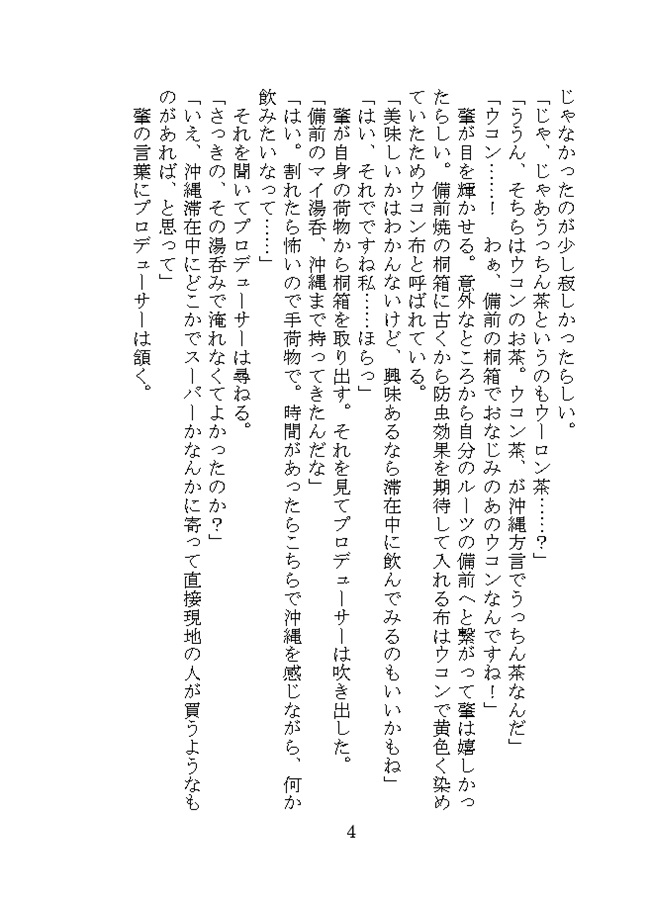 じゃなかったのが少し寂しかったらしい。
「じゃ、じゃあうっちん茶というのもウーロン茶……？」
「ううん、そちらはウコンのお茶。ウコン茶、が沖縄方言でうっちん茶なんだ」
「ウコン……！　わぁ、備前の桐箱でおなじみのあのウコンなんですね！」
　肇が目を輝かせる。意外なところから自分のルーツの備前へと繋がって肇は嬉しかっ
たらしい。備前焼の桐箱に古くから防虫効果を期待して入れる布はウコンで黄色く染め
ていたためウコン布と呼ばれている。
「美味しいかはわかんないけど、興味あるなら滞在中に飲んでみるのもいいかもね」
「はい、それでですね私……ほらっ」
　肇が自身の荷物から桐箱を取り出す。それを見てプロデューサーは吹き出した。
「備前のマイ湯呑、沖縄まで持ってきたんだな」
「はい。割れたら怖いので手荷物で。時間があったらこちらで沖縄を感じながら、何か
飲みたいなって……」
　それを聞いてプロデューサーは尋ねる。
「さっきの、その湯呑みで淹れなくてよかったのか？」
「いえ、沖縄滞在中にどこかでスーパーかなんかに寄って直接現地の人が買うようなも
のがあれば、と思って」
　肇の言葉にプロデューサーは頷く。
4